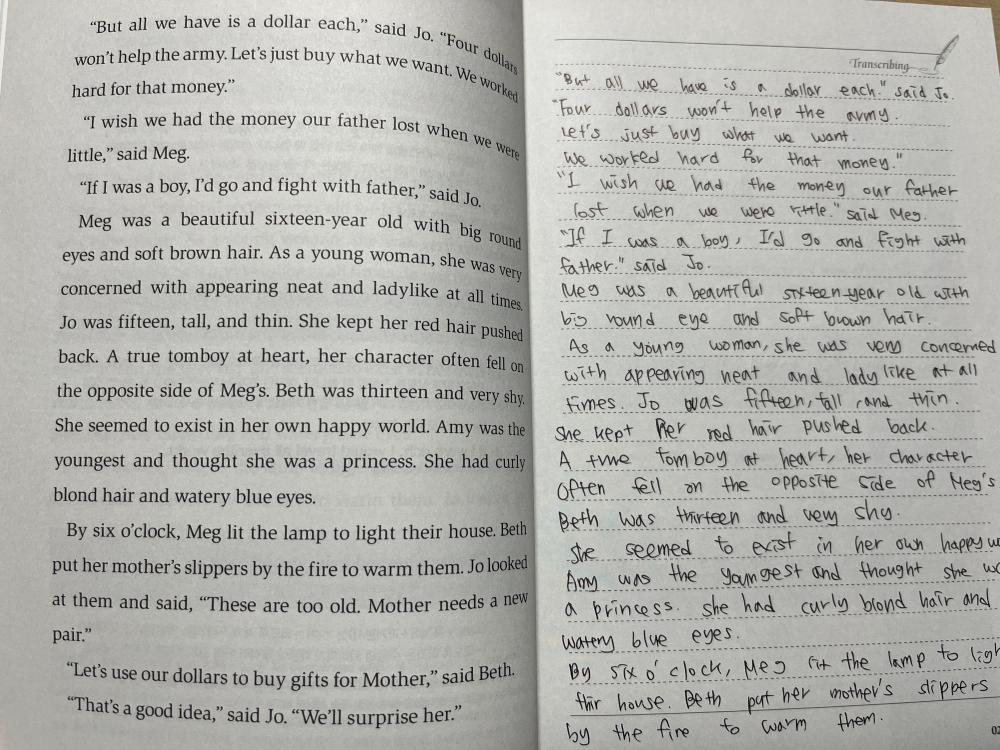 “But all we have is a dollar each,” said Jo. “Four dollars
won’t help the army. Let’s just buy what we want. We worked
hard for that money.”
“I wish we had the money our father lost when we were
little,” said Meg.
“If I was a boy, I’d go and fight with father,” said Jo.
Meg was a beautiful sixteen-year old with big round
eyes and soft brown hair. As a young woman, she was very
concerned with appearing neat and ladylike at all times.
Jo was fifteen, tall, and thin. She kept her red hair pushed
back. A true tomboy at heart, her character often fell on
the opposite side of Meg’s. Beth was thirteen and very shy.
She seemed to exist in her own happy world. Amy was the
youngest and thought she was a princess. She had curly
blond hair and watery blue eyes.
By six o’clock, Meg lit the lamp to light their house. Beth
put her mother’s slippers by the fire to warm them. Jo looked
at them and said, “These are too old. Mother needs a new
pair.”
“Let’s use our dollars to buy gifts for Mother,” said Beth.
“That’s a good idea,” said Jo. “We’ll surprise her.”
Transcribing
"But all we have is a dollar each." said Jo.
"Four dollars won't help the army.
Let's just buy what we want.
We worked hard for that money."
"I wish we had the money our father
lost when we were little." said Meg.
"If I was a boy, I'd go and fight with
father." said Jo.
Meg was a beautiful sixteen-year old with
big round eye and soft brown hair.
As a young woman, she was very concerned
with appearing neat and lady like at all
times. Jo was fifteen, tall, and thin.
She kept her red hair pushed back.
A true tomboy at heart, her character
Often fell on the opposite side of Meg's
Beth was thirteen and very shy.
She seemed to exist in her own happy
Amy was the youngest and thought she
a princess. she had curly blond hair and
watery blue eyes.
By six o'clock, Meg lit the lamp to
thir house. Beth put her mother's slippers
by the fire to warm them.